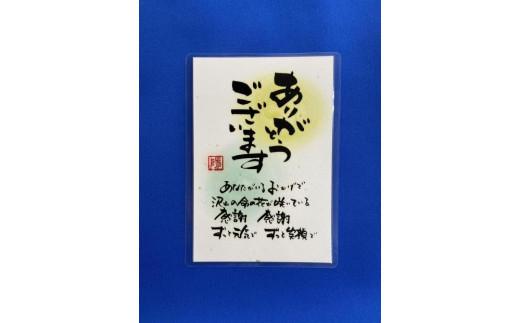 ありがとう
ございます
あなたがいるおかげで
沢山の命の花が咲いている
感謝 感謝
ずっと元気で ずっと笑顔で